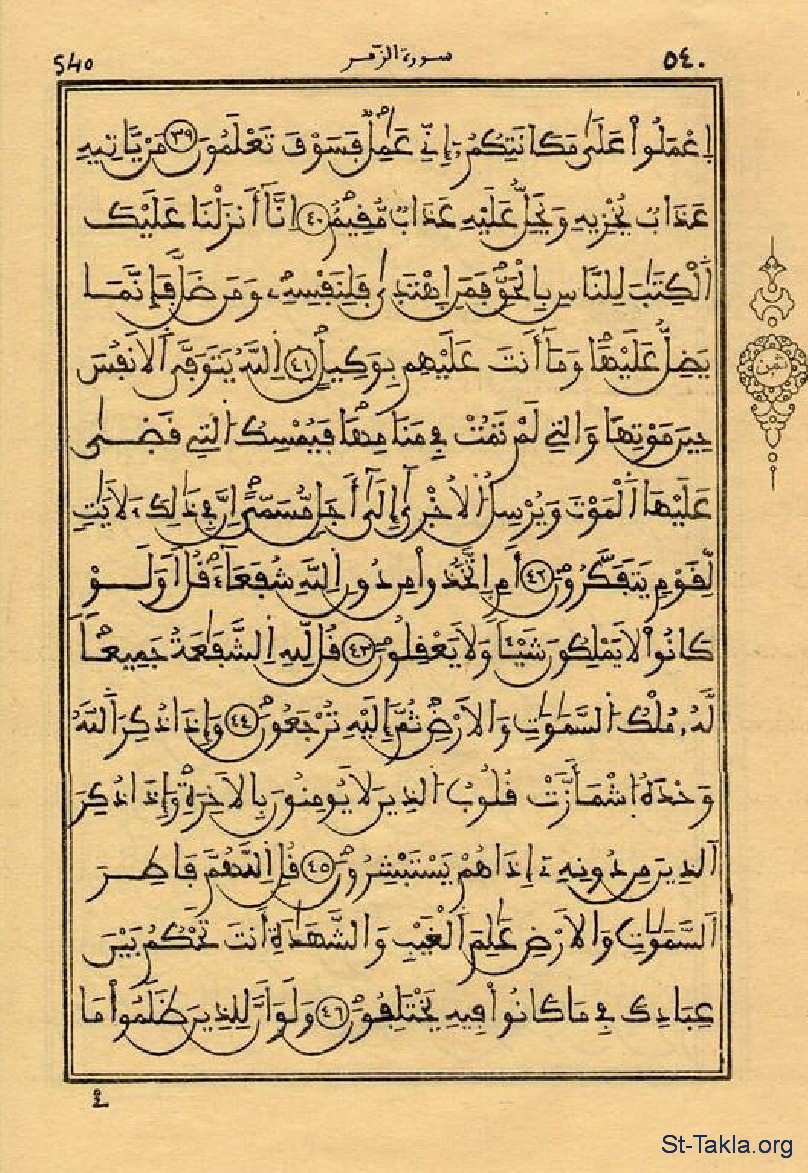 540 سورة الزمر ٥٤٠
اِعْمَلُواْ عَلَىٰ مَكَانَتِكُمُۥٓ إِنِّے عَٰمِلٞ فَسَوْفَ تَعْلَمُونَ ٣٩ مَنْ يَّاتِيهِ
عَذَابٞ يُخْزِيهِ وَيَحِلُّ عَلَيْهِ عَذَابٞ مُّقِيمٌۖ ٤٠ اِنَّآ أَنزَلْنَا عَلَيْكَ
اَ۬لْكِتَٰبَ لِلنَّاسِ بِالْحَقِّۖ فَمَنِ اِ۪هْتَد۪ىٰ فَلِنَفْسِهِۦۖ وَمَن ضَلَّ فَإِنَّمَا
يَضِلُّ عَلَيْهَاۖ وَمَآ أَنتَ عَلَيْهِم بِوَكِيلٍۖ ٤١ اِ۬للَّهُ يَتَوَفَّى اَ۬لَانفُسَ
حِينَ مَوْتِهَا وَالتِے لَمْ تَمُتْ فِے مَنَامِهَاۖ فَيُمْسِكُ اُ۬لتِے قَضَىٰ
عَلَيْهَا اَ۬لْمَوْتَ وَيُرْسِلُ اُ۬لُاخْر۪ىٰٓ إِلَىٰٓ أَجَلٖ مُّسَمّىًۖ اِنَّ فِے ذَٰلِكَ ءَلَايَٰتٖ
لِّقَوْمٖ يَتَفَكَّرُونَۖ ٤٢ أَمِ اِ۪تَّخَذُواْ مِن دُونِ اِ۬للَّهِ شُفَعَآءَۖ قُلَ اَوَلَوْ
كَانُواْ لَا يَمْلِكُونَ شَيْـٔاٗ وَلَا يَعْقِلُونَۖ ٤٣ قُل لِّلهِ اِ۬لشَّفَٰعَةُ جَمِيعاٗ
لَّهُۥ مُلْكُ اُ۬لسَّمَٰوَٰتِ وَالَارْضِۖ ثُمَّ إِلَيْهِ تُرْجَعُونَۖ ٤٤ وَإِذَا ذُكِرَ اَ۬للَّهُ
وَحْدَهُ اُ۪شْمَأَزَّتْ قُلُوبُ اُ۬لذِينَ لَا يُومِنُونَ بِالَاخِرَةِۖ وَإِذَا ذُكِرَ
اَ۬لذِينَ مِن دُونِهِۦٓ إِذَا هُمْ يَسْتَبْشِرُونَۖ ٤٥ قُلِ اِ۬للَّهُمَّ فَاطِرَ
اَ۬لسَّمَٰوَٰتِ وَالَارْضِ عَٰلِمَ اَ۬لْغَيْبِ وَالشَّهَٰدَةِ أَنتَ تَحْكُمُ بَيْنَ
عِبَادِكَ فِے مَا كَانُواْ فِيهِ يَخْتَلِفُونَۖ ٤٦ وَلَوَ اَنَّ لِلذِينَ ظَلَمُواْ مَا
ثمن
St-Takla.org